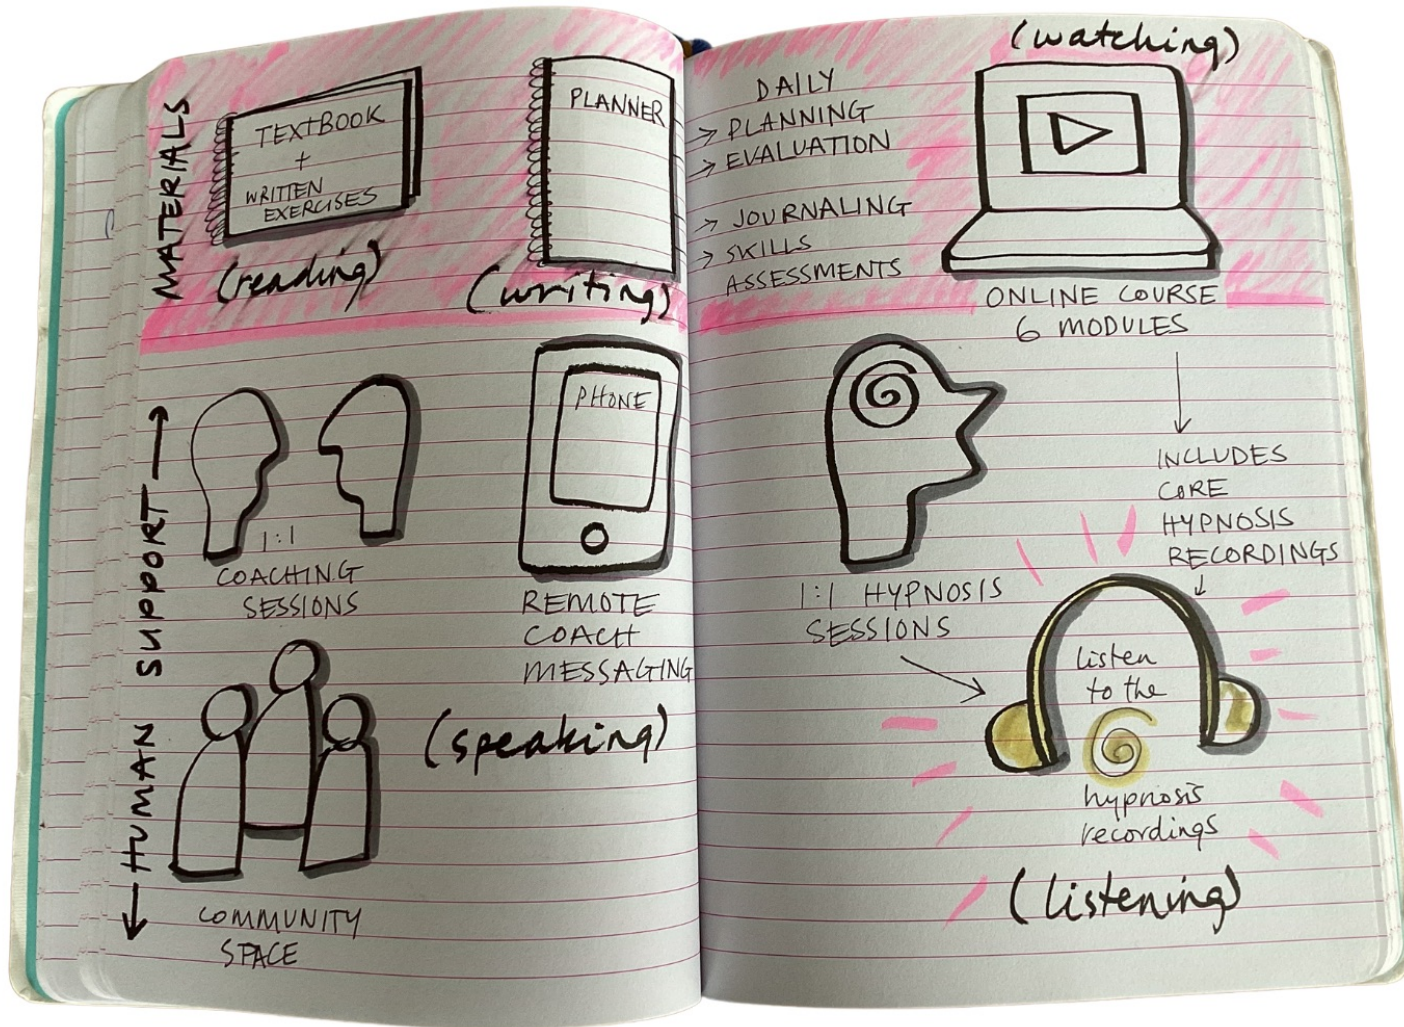 MATERIALS
TEXTBOOK
+
WRITTEN
EXERCISES
(reading)
PLANNER
(writing)
DAILY
→ PLANNING
→ EVALUATION
→ JOURNALING
→ SKILLS
ASSESSMENTS
(watching)
ONLINE COURSE
6 MODULES
INCLUDES
CORE
HYPNOSIS
RECORDINGS
← HUMAN SUPPORT →
1:1
COACHING
SESSIONS
PHONE
REMOTE
COACH
MESSAGING
COMMUNITY
SPACE
(speaking)
1:1 HYPNOSIS
SESSIONS
listen
to the
hypnosis
recordings
(listening)